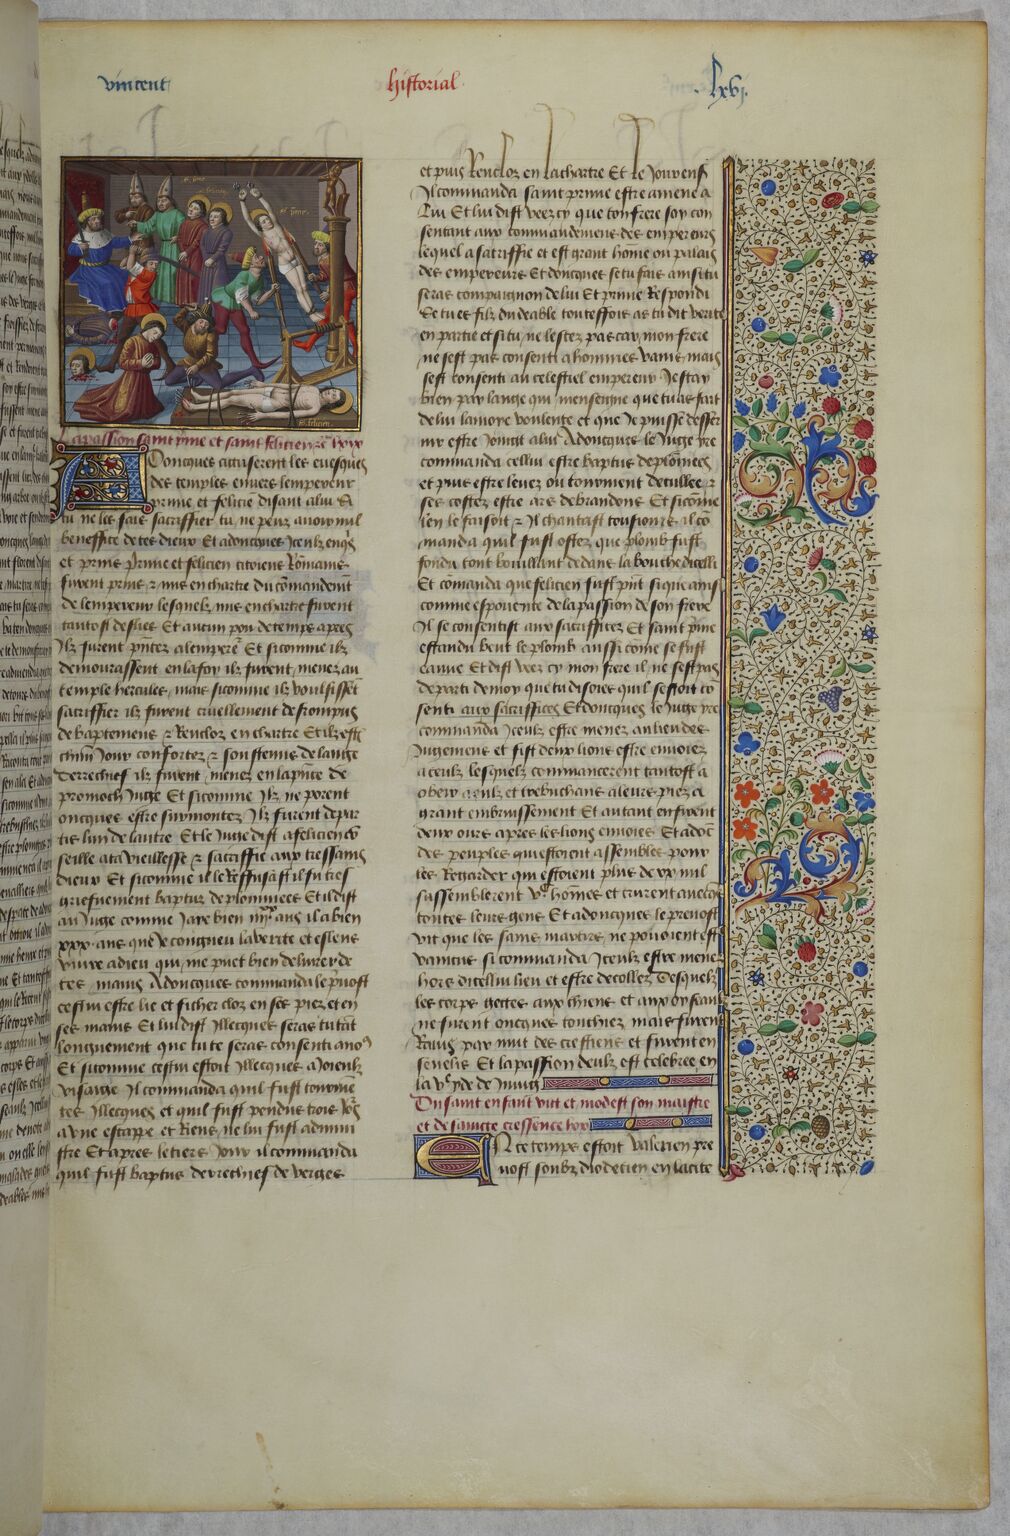 vincent
historial
.lxvj.
La passion saint prime et saint felicien
Doncques accuserent les evesques
des temples envers lempereur
prime et felicie disant a lui Se
tu ne les fais sacrifier tu ne peux avoir nul
beneffice de tes dieux Et adoncques
et prins Prime et felicien citoiens Rommains
furent prins et mis en chartre du commandement
de lempereur lesquelz mis en chartre furent
tantost deslies Et aucun pou de temps apres
Ilz furent a lempere Et si comme ilz
demourassent en la foy ilz furent menez au
temple hercules mais si comme ilz voulsissent
sacriffier ilz furent cruellement desrompus
de baptemens et Renclox en chartre
Jour confortez et soustenus de lange
derrechief ilz furent menez en la pnce de
promoch Juge Et si comme Ilz ne porent
oncques estre surmontez Ilz furent depar
tis lun de lautre Et le Juge dist a felicien
seille a ta vieillesse et sacriffie aux tressains
dieux Et si comme il le Reffusast il fu tres
griefuement baptus de plommees Et il dist
au Juge comme Jaye bien ans il a bien
xxx. ans que Je congneu la verite et esleus
vivre a dieu qui me puet bien delivrer de
tes mains Adoncques commanda le pvost
cestui estre lie et ficher cloz en ses piez et en
ses mains Et lui dist Illecques seras tu tant
longuement que tu te seras consenti a nos
Et si comme cestui estoit Illecques a Joieulx
visaige Il commanda quil fust tourmente
Illecques et quil fust pendus trois Jors
a une et Riens ne lui fust admini
stre Et apres le tiers Jour il commanda
quil fust baptus derrechief de verges
et puis Renclox en la chartre Et le Jour ens
Il commanda saint prime estre amene a
lui Et lui dist veez cy que ton frere soy con
sentant aux commandemens des empereurs
lequel a sacriffie et est grant homme ou palais
des empereurs Et doncques se tu fais ainsi tu
seras compaignon de lui Et prime Respondi
Se tu es filz du deable touteffois as tu dit verite
en partie et si tu ne lestez pas car mon frere
ne sest pas consenti a hommes vains mais
sest consenti au celestiel empereur Je stay
bien par lange qui menseigne que tu as fait
de lui la voye voulente et que Je puisse desser
vir estre Joingt a lui Adoncques le Juge yre
commanda cellui estre baptus de plommees
et puis estre levez ou tourment de cullee et
ses costez estre ars de brandons Et si comme
len le faisoit et Il chantast tousiours Il co
manda quil fust ostez que plomb fust
fondu tout bouillant dedans la bouche dicellui
Et comanda que felicien fust pnt si que ainsi
comme espouente de la passion de son frere
Il se consentist aux sacrifficez Et saint pme
estandu beut le plomb aussi come se fust
eaue Et dist veez cy mon frere il ne sest pas
departi de moy que tu disoies quil sestoit con
senti aux sacrifficez Et doncques le Juge yre
commanda Iceulx estre menez au lieu des
Jugemens et fist deux lions estre envoiez
a ceulx lesquelz commancerent tantost a
obeir a eulx et trebuchans a leurs piez a
grant embruissement Et autant en furent
deux ours apres les lions envoies Et adonc
des peuples qui estoient assembles pour
les Regarder qui estoient plus de xx mil
sassemblerent hommes et crurent avecques
toutes leurs gens Et adoncques le prevost
vit que les sains martirs ne pouoient estre
vaincus si commanda Iceulx estre menez
hors dicellui lieu et estre decollez Desquelz
les corps gettes aux chiens et aux oyseaulx
ne furent oncques touchiez mais furent
Ravis par nuit des crestiens et furent en
sevelis Et la passion deulx est celebree en
la vᵉ yde de Juing
Du saint enfant vitt et modest son maistre
et de saincte cressence
En ce temps estoit valerien pre
vost soubz dioclecien en la cite